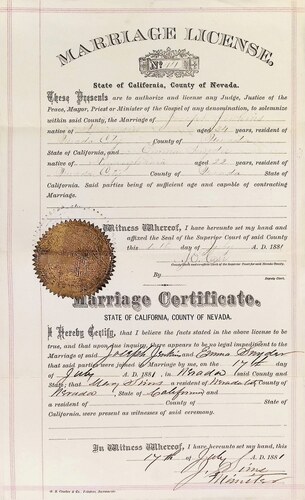 MARRIAGE LICENSE,
No
State of California, County of Nevada.
These Presents are to authorize and license any Judge, Justice of the
Peace, Mayor, Priest or Minister of the Gospel of any denomination, to solemnize
within said County, the Marriage of
native of aged years, resident of
County of
State of California, and
native of aged 22 years, resident of
County of Nevada State of
California. Said parties being of sufficient age and capable of contracting
Marriage.
Witness Whereof, I have hereunto set my hand and
affixed the Seal of the Superior Court of said County
this day of A. D. 1881
By
Deputy
Marriage Certificate.
STATE OF CALIFORNIA, COUNTY OF NEVADA.
I Hereby Certify, that I believe the facts stated in the above license to be
true, and that upon due inquiry, there appears to be no legal impediment to the
Marriage of said Joseph Jenkins and Emma Snyder
that said parties were joined in Marriage by me, on the 17th day
of July A. D. 1881, in Nevada said County and
State; that Mary Sims a resident of Nevada Co County of
Nevada, State of California and
a resident of County of State of
California, were present as witnesses of said ceremony.
In Witness Whereof, I have hereunto set my hand, this
17th of July A. D. 1881
J. Sims
Minister